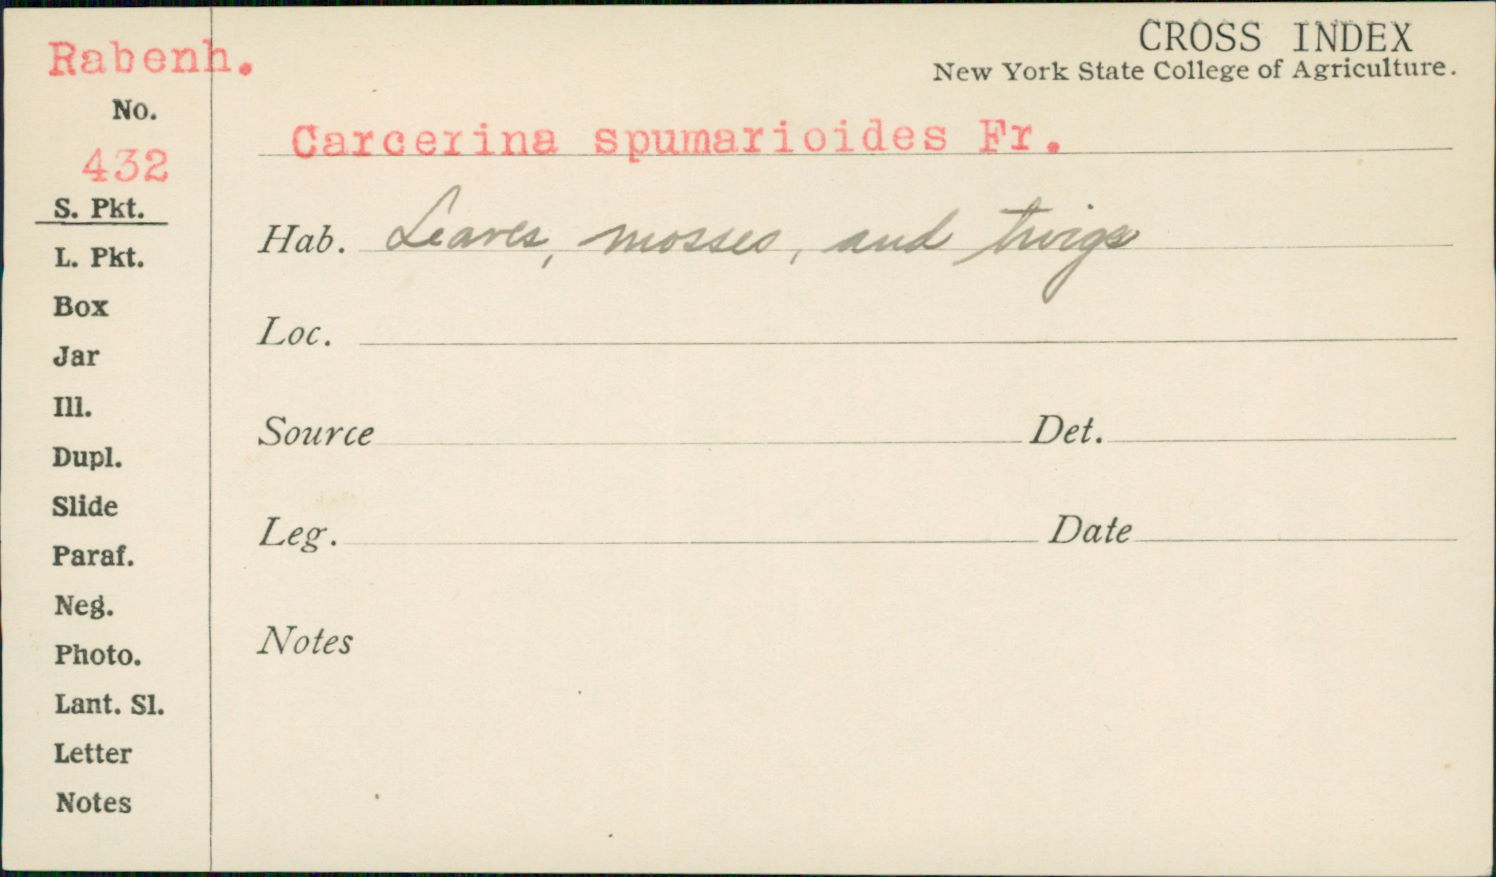 Rabenh.
CROSS INDEX
New York State College of Agriculture.
No.
432
Carcerina spumarioides Fr.
S. Pkt.
Hab. Leaves, mosses, and twigs
L. Pkt.
Box
Loc.
Jar
Ill.
Source Det.
Dupl.
Slide
Leg. Date
Paraf.
Neg.
Notes
Photo.
Lant. Sl.
Letter
Notes